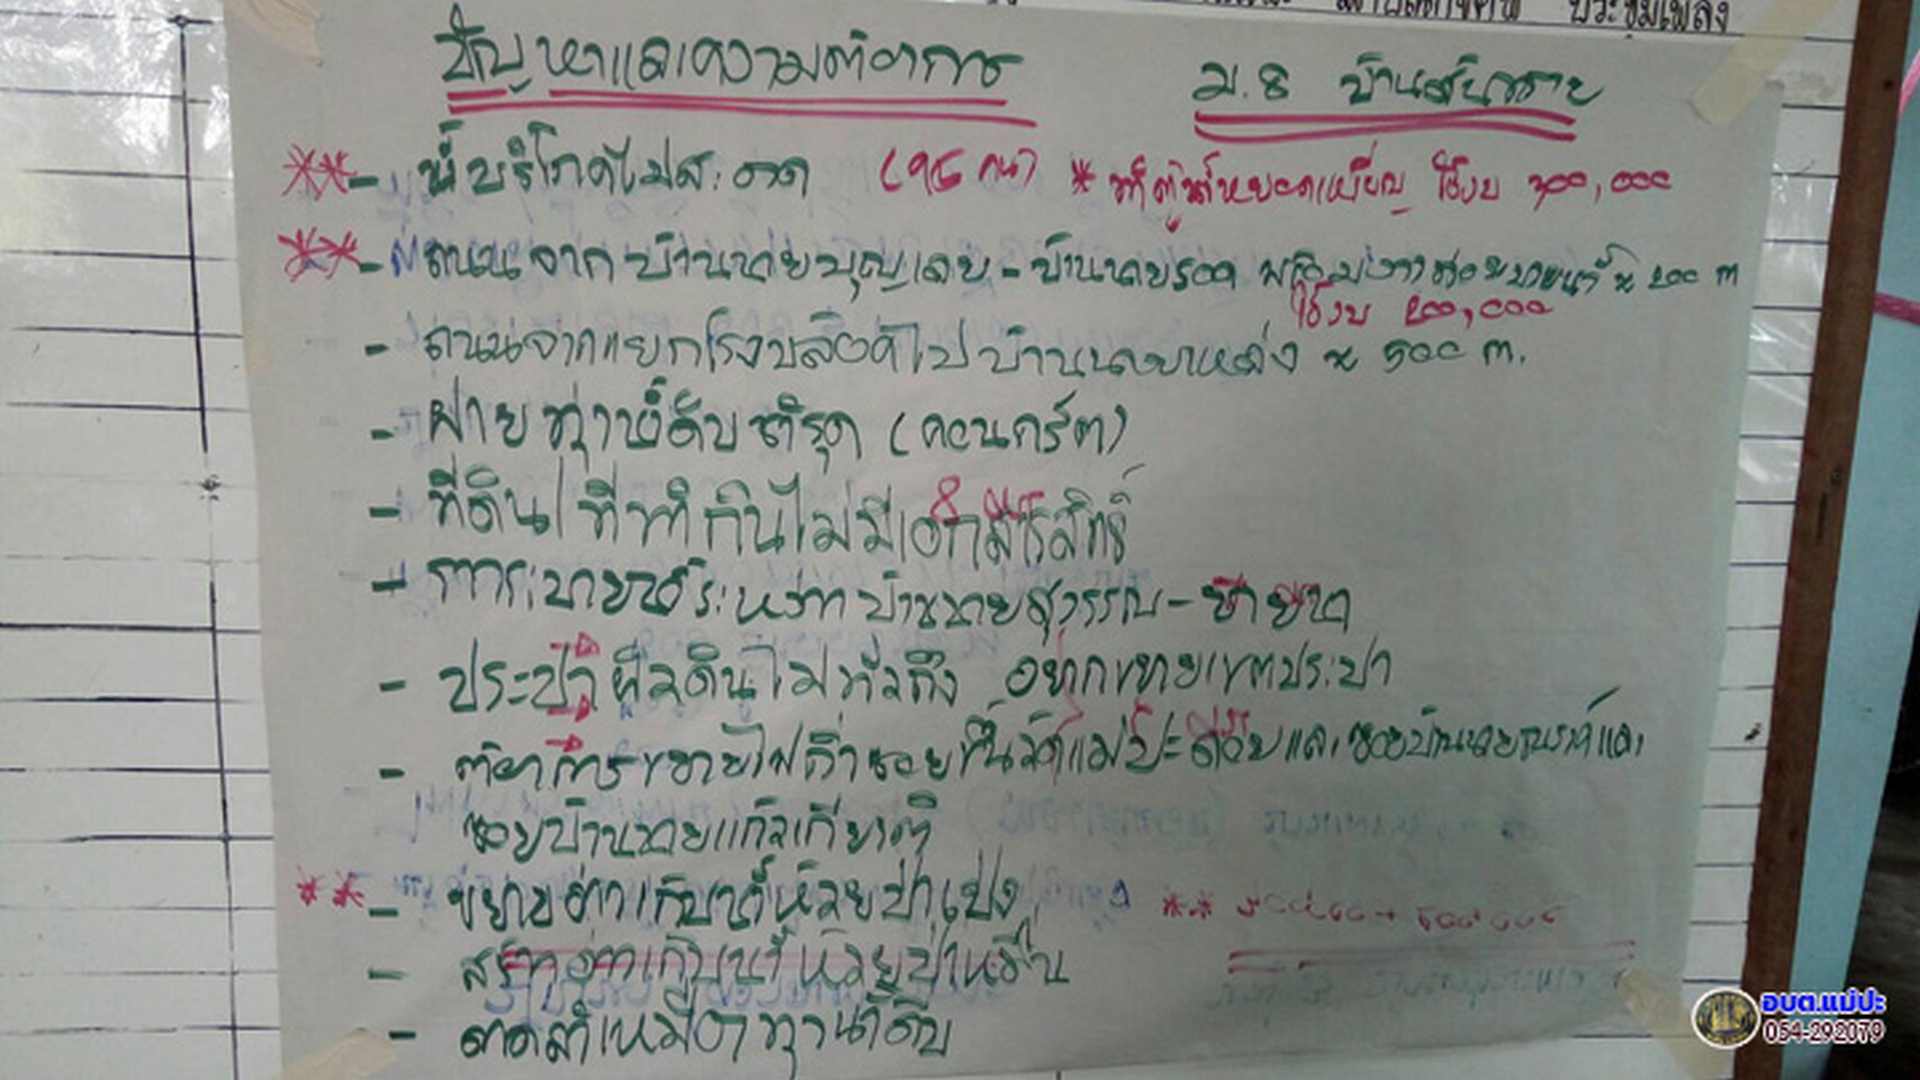 ประชุมเพลง
ปัญหาและความต้องการ ม.8 บ้านสันทราย
** - น้ำบริโภคไม่สะอาด * ทำตู้น้ำหยอดเหรียญ ใช้งบ 300,000
** - ถนนจากบ้านนายบุญเลย - บ้านนายรอด พร้อมวางท่อระบายน้ำ ≈ 200 m
ใช้งบ 200,000
- ถนนจากแยกโรงบล๊อคไปบ้านนายเหล่ง ≈ 500 m.
- ฝายทุ่งน้ำดิบชำรุด (คอนกรีต)
- ที่ดิน/ที่ทำกินไม่มีเอกสารสิทธิ์
- การระบายน้ำระหว่างบ้านนายสุวรรณ -
- ประปาผิวดินไม่ทั่วถึง อยากขยายเขตประปา
- ต้องการขยายไฟกิ่งซอยขึ้นวัดแม่ปะดอยและซอยบ้านนาย และ
ซอยบ้านนายแก้วเกียรติ
** - ขยายอ่างเก็บน้ำห้วยป่าเปาง **
- สร้างอ่างเก็บน้ำห้วยป่า
- ดาดลำเหมืองทุ่งน้ำดิบ
อบต.แม่ปะ
054-292079